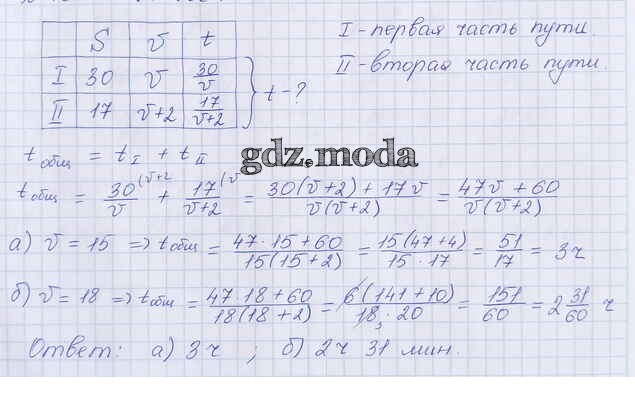 S v t
I 30 v 30/v
II 17 v+2 17/(v+2)
t - ?
I - первая часть пути.
II - вторая часть пути.
t общ = t I + t II
gdz.moda
t общ = 30/v (v+2 + 17/(v+2) (v = (30(v+2) + 17v)/(v(v+2)) = (47v + 60)/(v(v+2))
а) v = 15 => t общ = (47·15+60)/(15(15+2)) = (15(47+4))/(15·17) = 51/17 = 3ч
б) v = 18 => t общ = (47·18+60)/(18(18+2)) = (6(141+10))/(18₃·20) = 151/60 = 2 31/60 ч
Ответ: а) 3ч ; б) 2ч 31 мин.